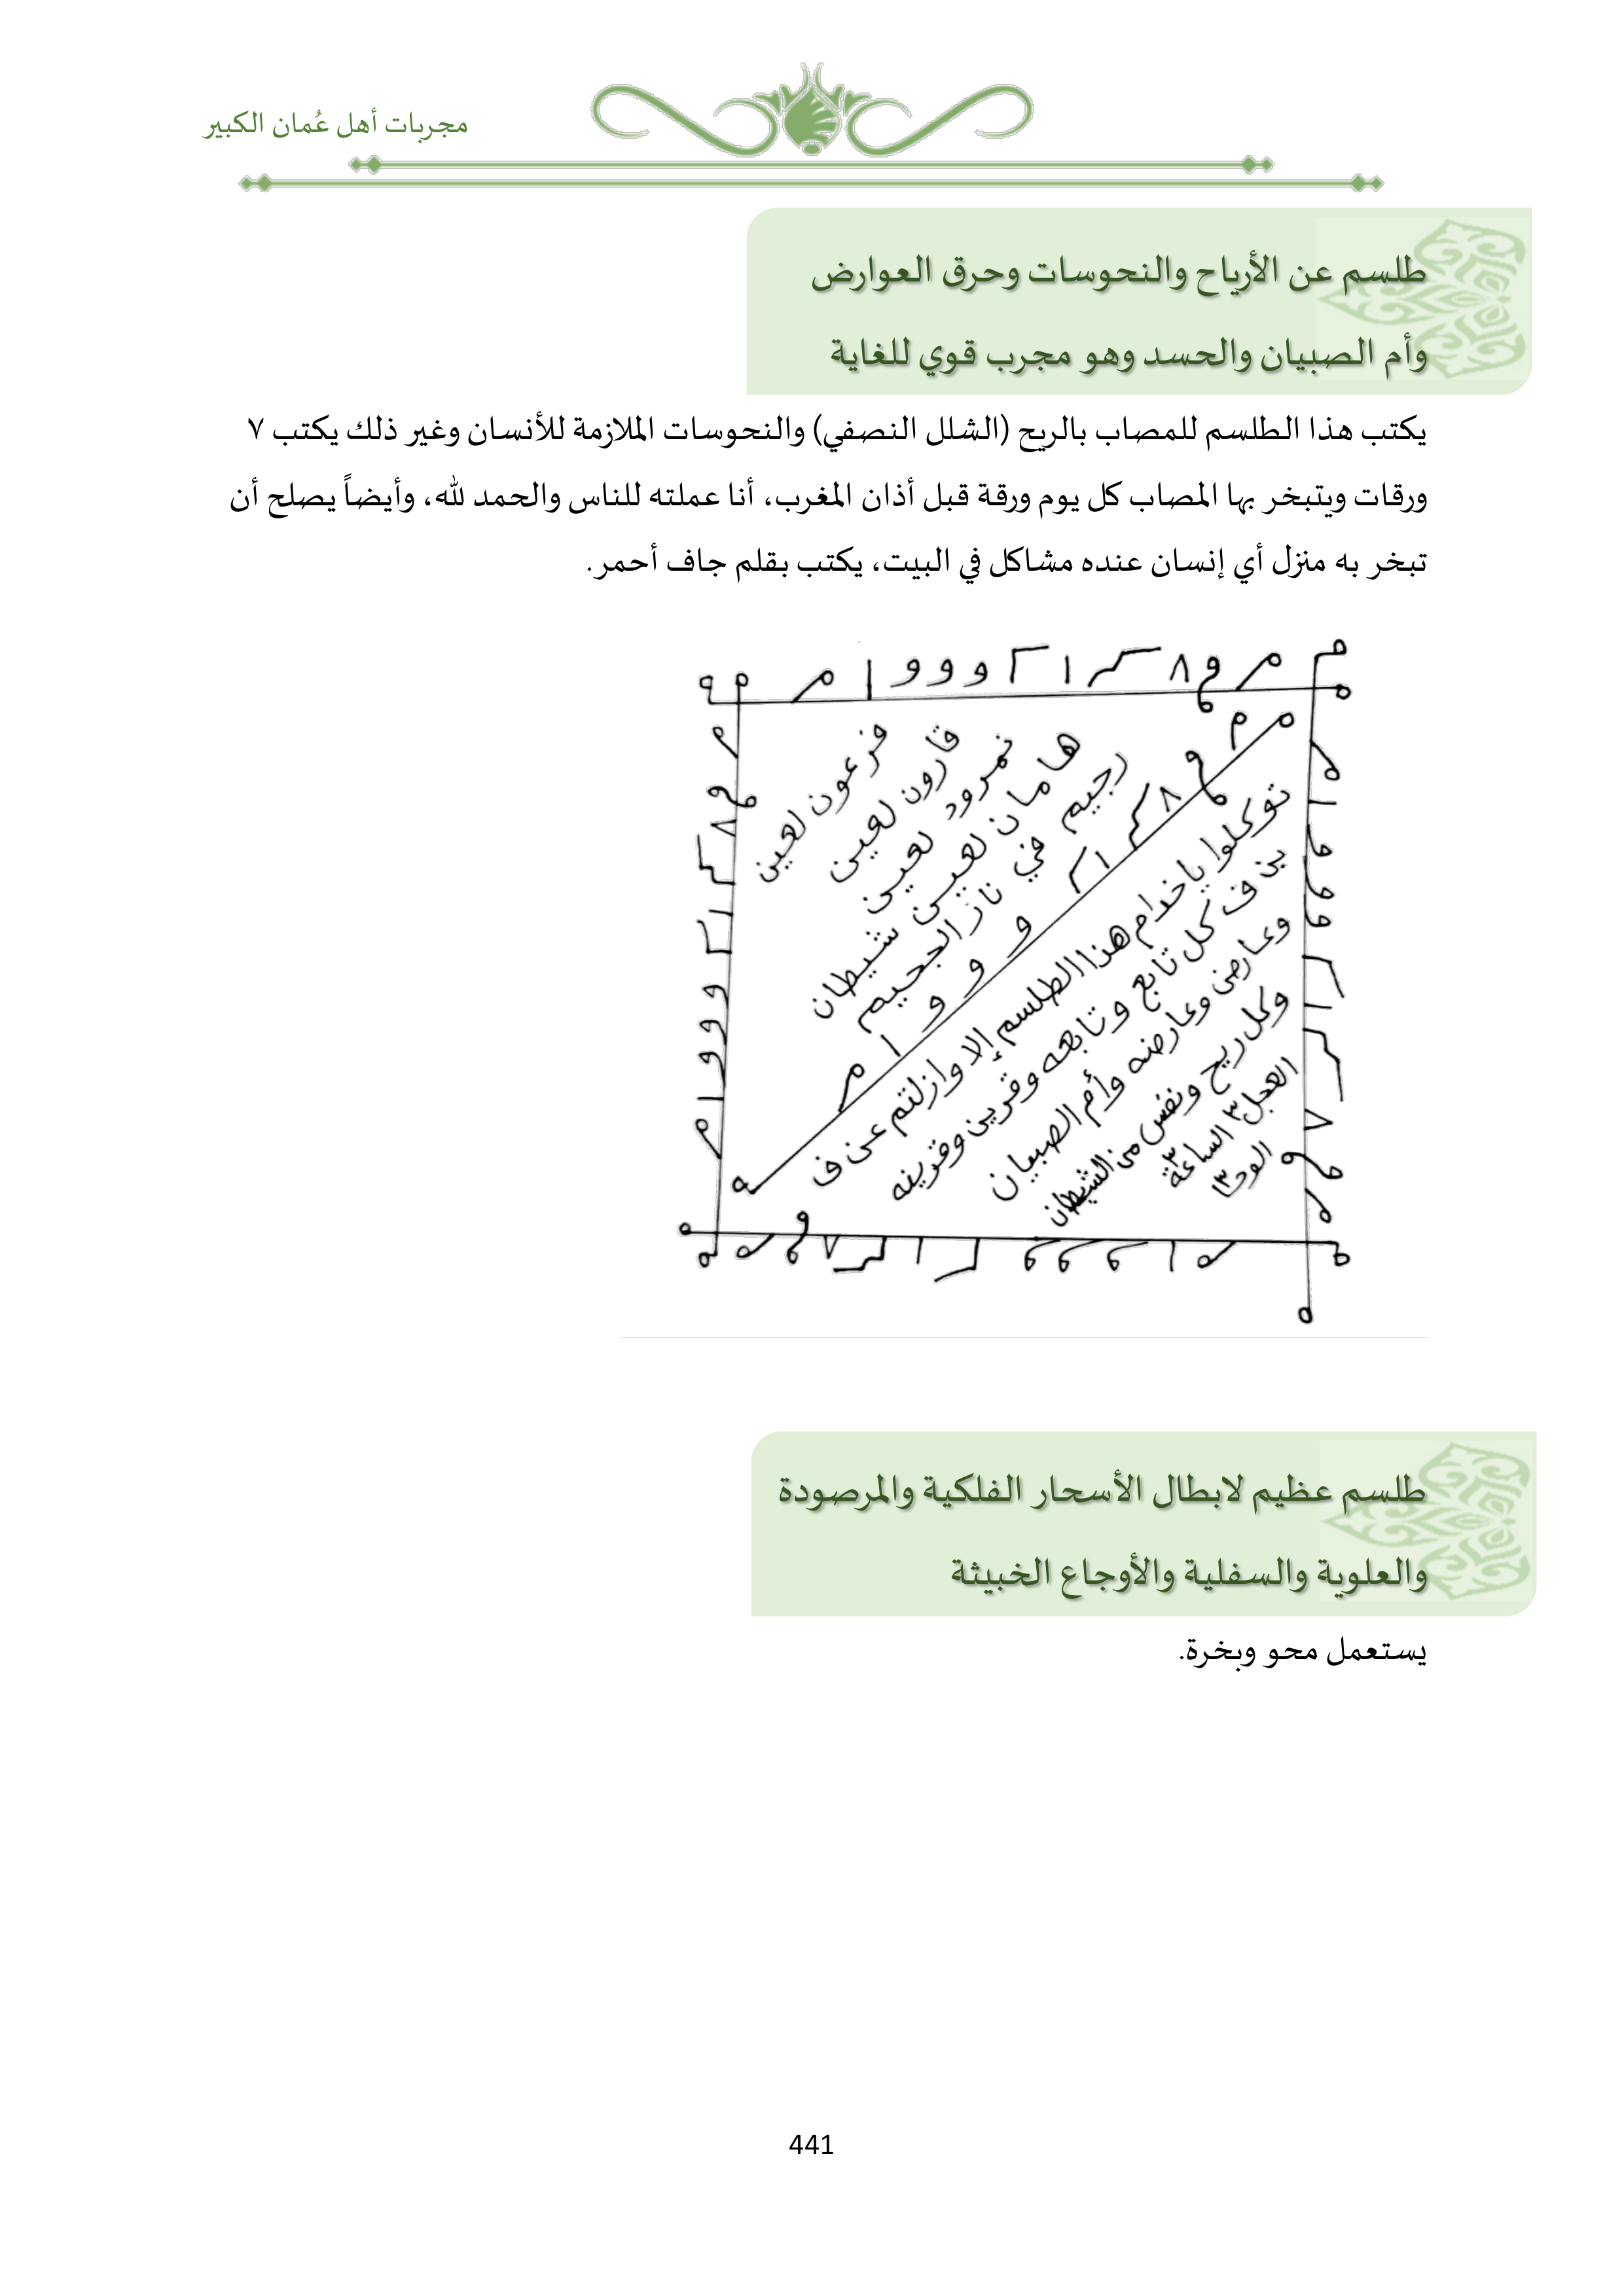 مجربات أهل عُمان الكبير
طلسم عن الأرياح والنحوسات وحرق العوارض
وأم الصبيان والحسد وهو مجرب قوي للغاية
يكتب هذا الطلسم للمصاب بالريح (الشلل النصفي) والنحوسات الملازمة للأنسان وغير ذلك يكتب ٧
ورقات ويتبخر بها المصاب كل يوم ورقة قبل أذان المغرب، أنا عملته للناس والحمد لله، وأيضاً يصلح أن
تبخر به منزل أي إنسان عنده مشاكل في البيت، يكتب بقلم جاف أحمر.
فرعون لعين
قارون لعين
نمرود لعين
هامان لعين شيطان
رجيم في نار الجحيم
توكلوا ياخدام هذا الطلسم إلا وازلتم عن ف
بن ف كل تابع وتابعه وقرين وقرينه
وعارض وعارضه وأم الصبيان
وكل ريح ونفس من الشيطان
العجل ٣ الساعة ٣
الوحا ٣
طلسم عظيم لابطال الأسحار الفلكية والمرصودة
والعلوية والسفلية والأوجاع الخبيثة
يستعمل محو وبخرة.
441